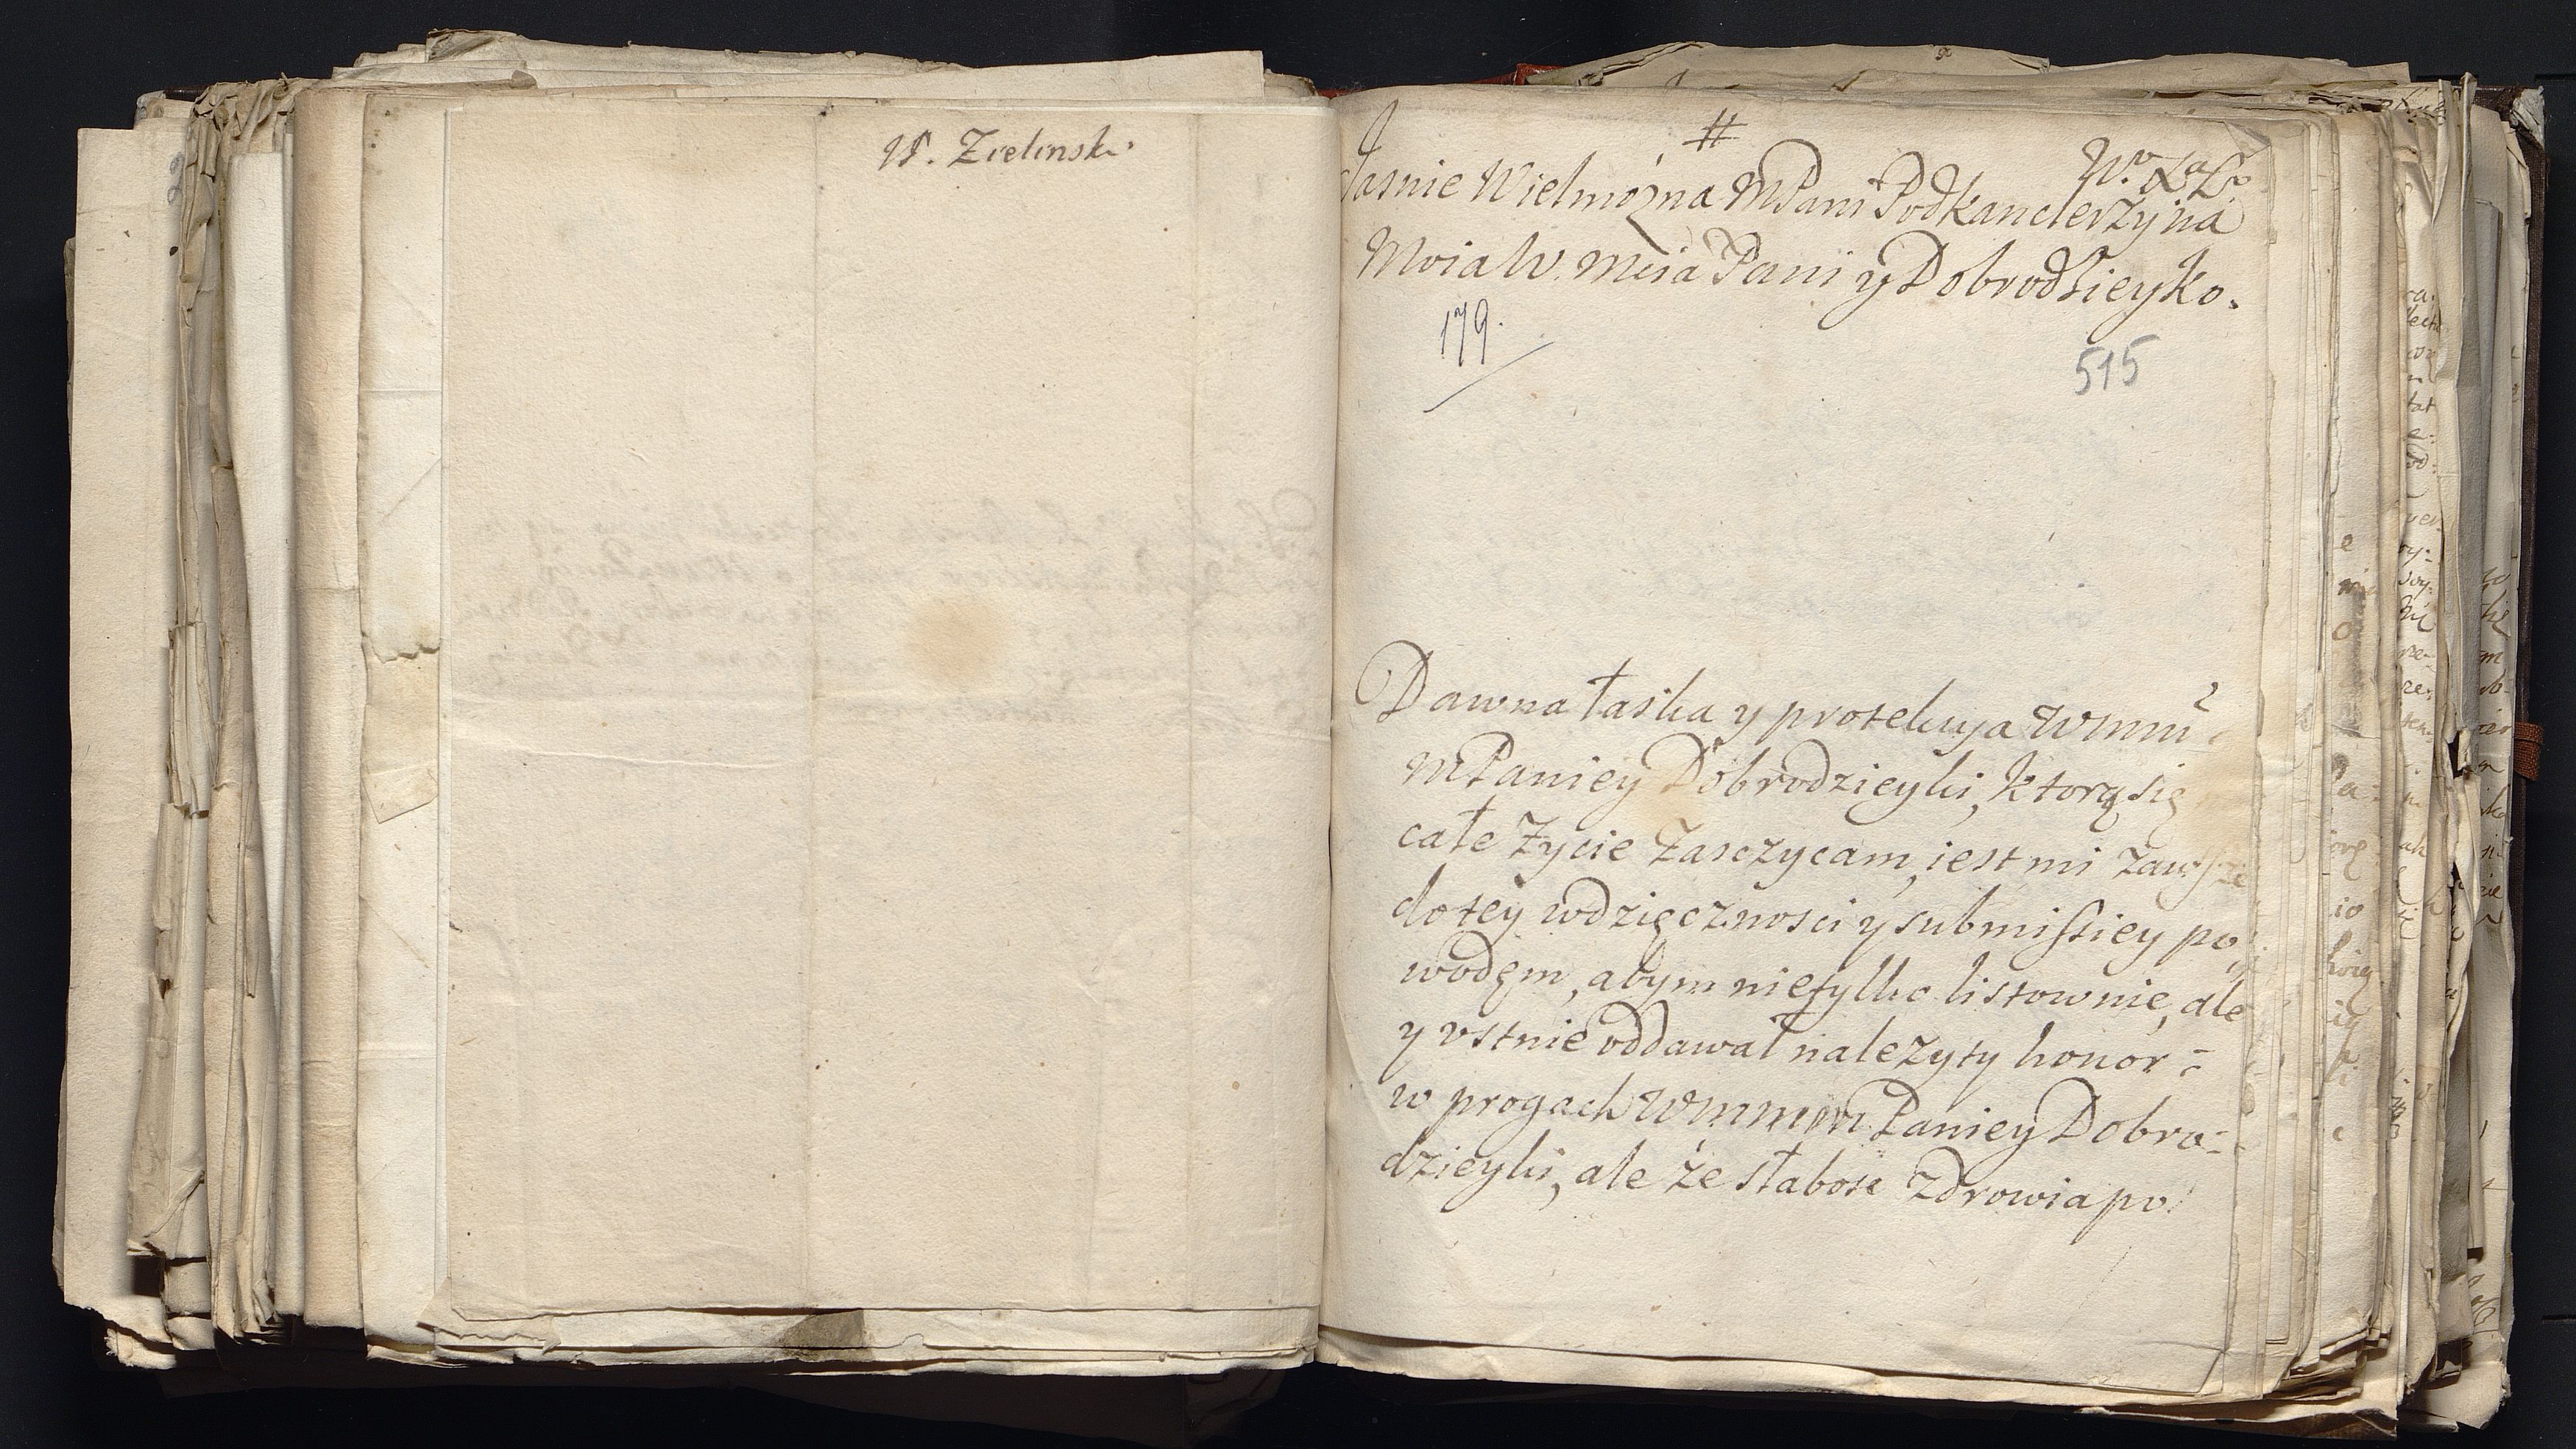 W. Zielinski
#
Jasnie Wielmożna MPani Podkanclerzyna
Moia W. Mcia Pani y Dobrodzieyko.
179.
515
Dawna łaska y protekcyja WMM
MPaniey Dobrodzieyki, ktorą się
całe życie zasczycam, iest mi zawsze
do tey wdzięcznosci y submissiey po
wodęm, abym nietylko listownie, ale
y vstnie oddawał należyty honor
w progach WMMM Paniey Dobro-
dzieyki, ale że słabosc zdrowia po